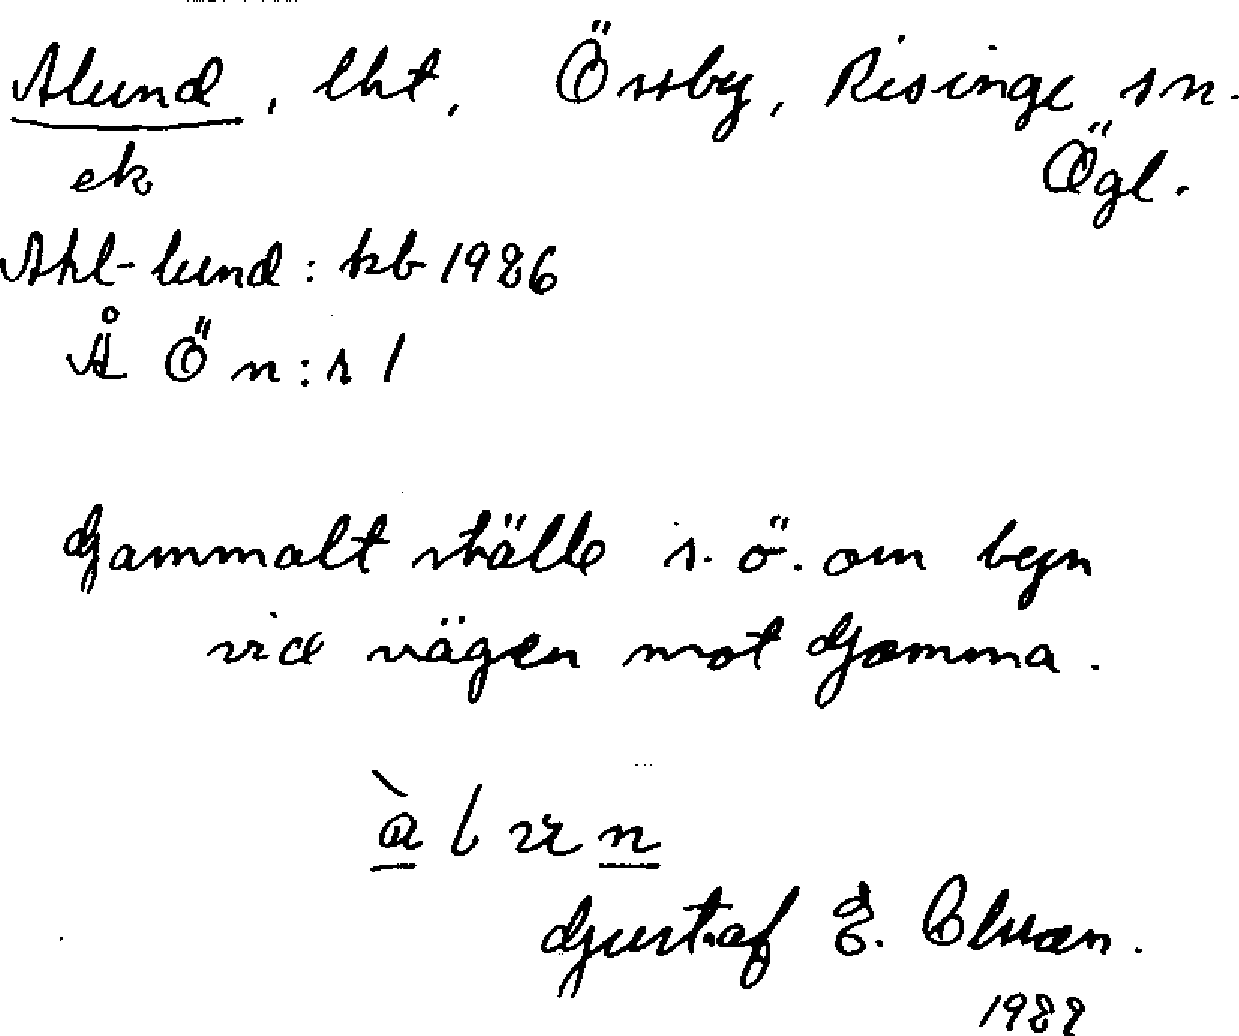 Alund, lht, Össby, Risinge sn.
ek Ögl.
Ahl-lund: kb 1926
Å Ö n:r 1
Gammalt ställe s.ö. om byn
vid vägen mot Gamma.
Gustaf E.